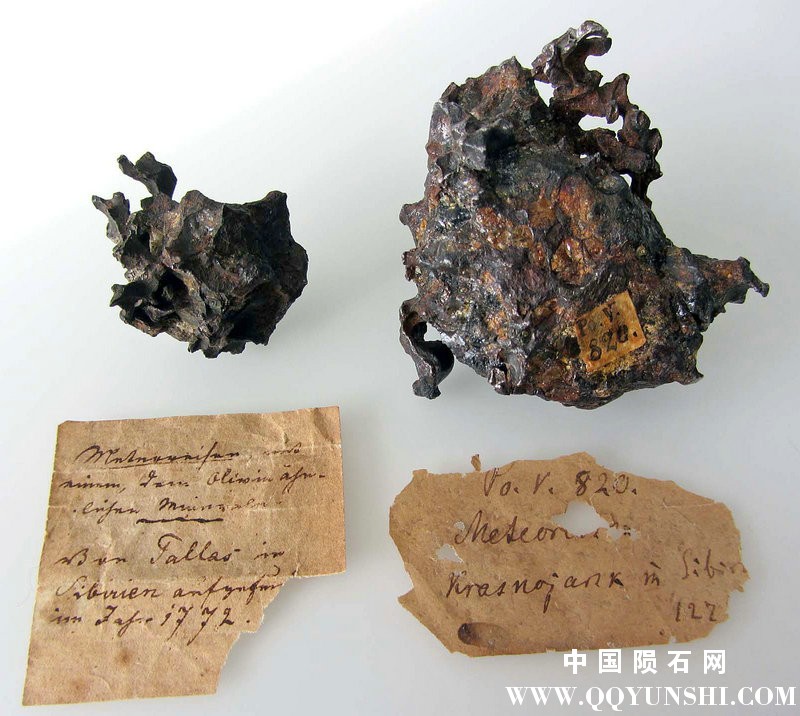 Po. V.
820.
Meteoreisen mit
einem, dem Olivin ähn-
lichen Mineral
Von Pallas in
Sibirien aufgefun
im Jahr 1772.
Po. V. 820.
Meteor
Krasnojarsk in Sibir
122
中国陨石网
WWW.QQYUNSHI.COM